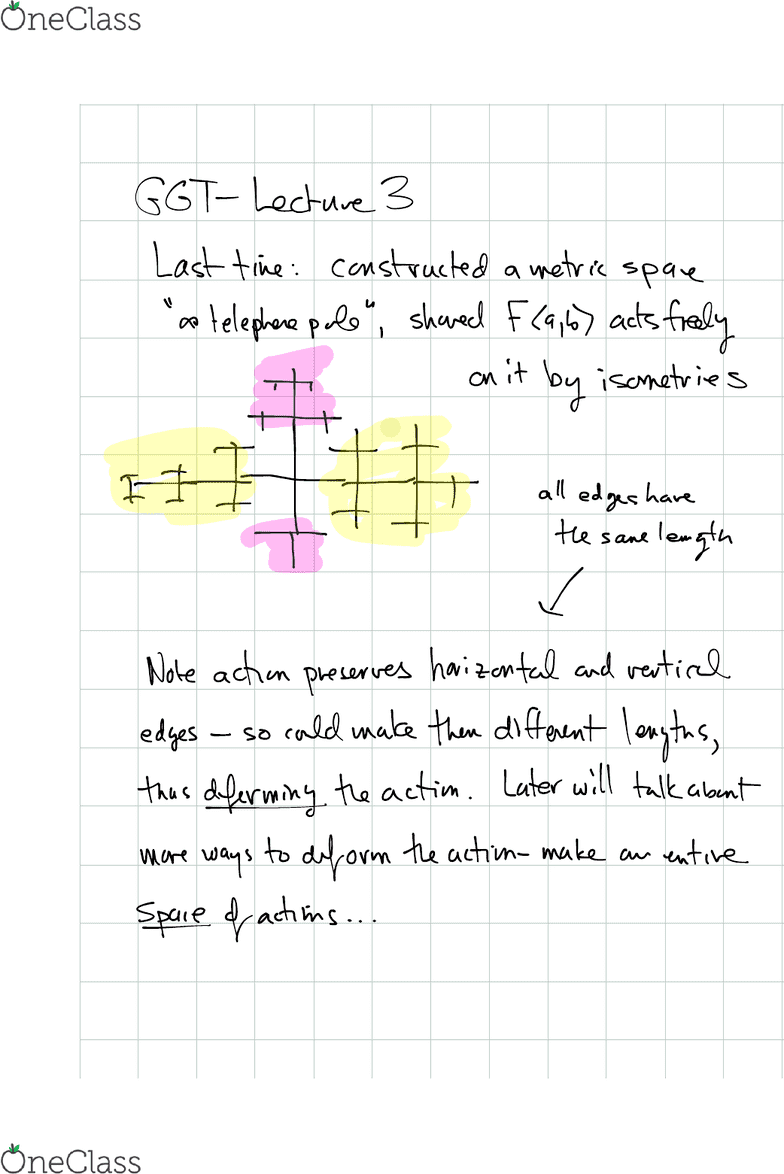 OneClass
GGT - Lecture 3
Last time: constructed a metric space
"∞ telephone pole", showed F<a,b> acts freely
on it by isometries
all edges have
the same length
Note action preserves horizontal and vertical
edges — so could make them different lengths,
thus deforming the action. Later will talk about
more ways to deform the action - make an entire
space of actions...
OneClass